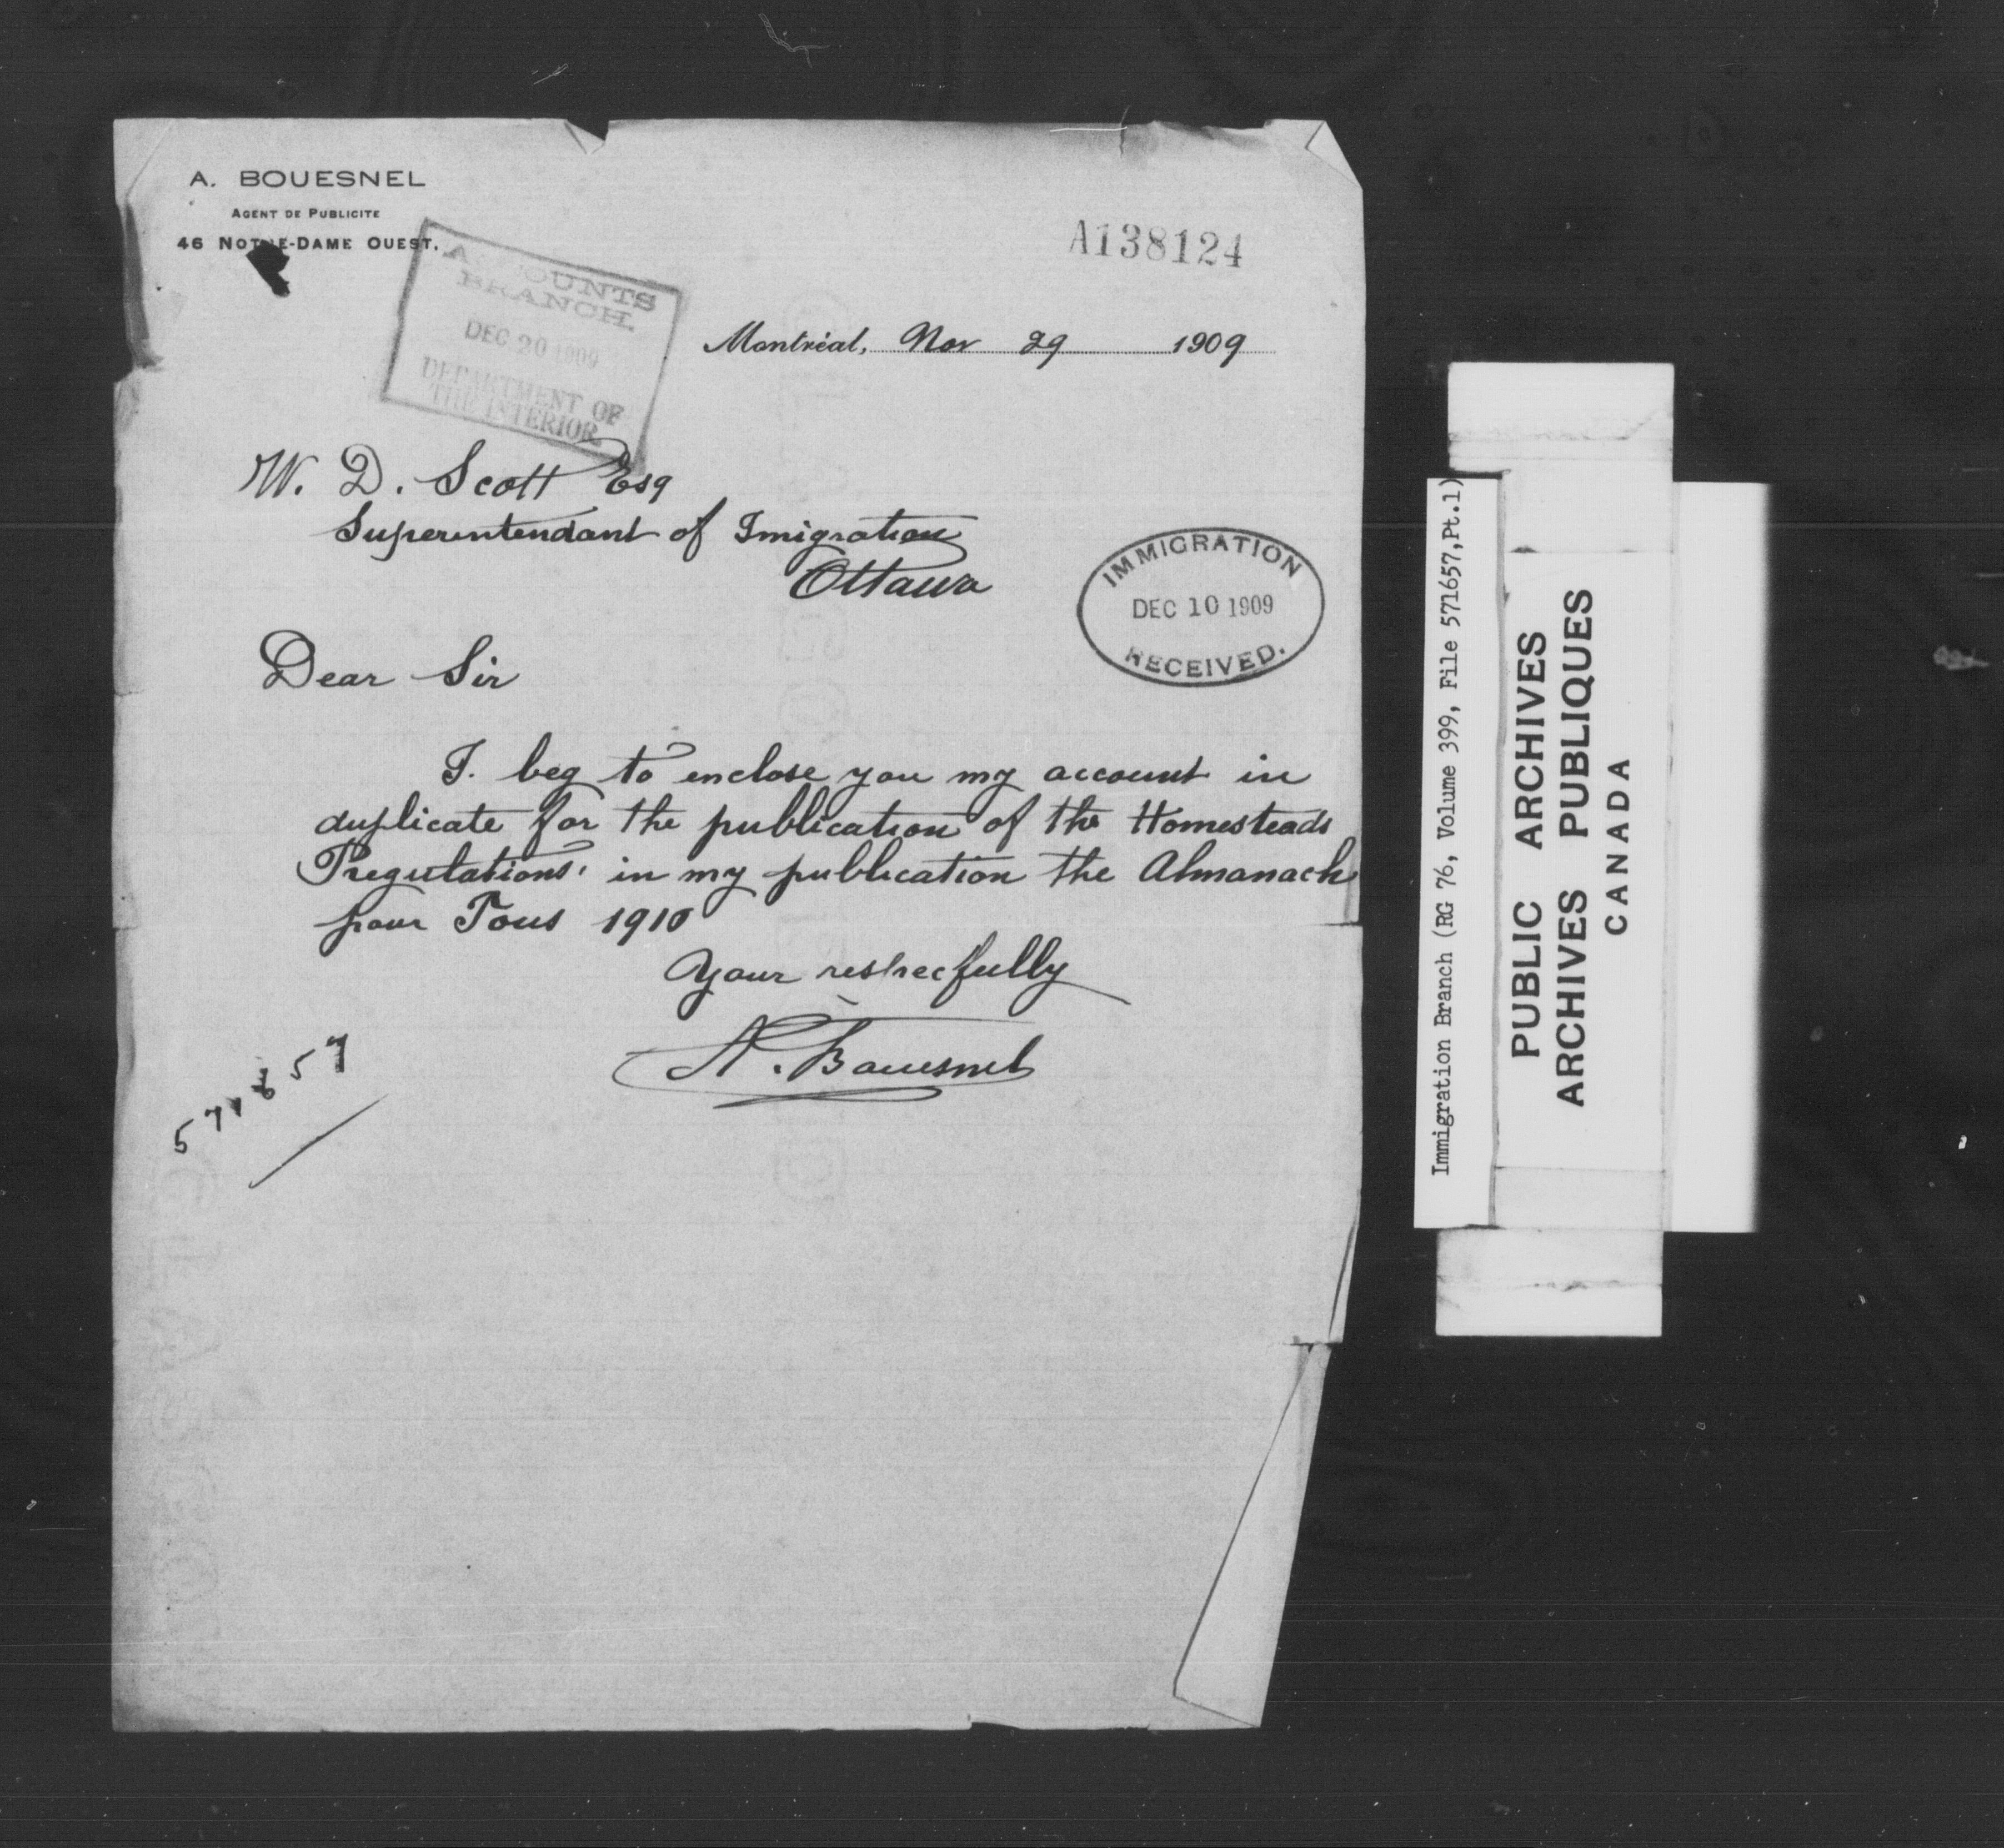 A. BOUESNEL
AGENT DE PUBLICITE
46 NOTRE-DAME OUEST.
A138124
ACCOUNTS
BRANCH.
DEC 20 1909
DEPARTMENT OF
THE INTERIOR
Montréal, Nov 29 1909
W. D. Scott Esq
Superintendant of Imigration
Ottawa
IMMIGRATION
DEC 10 1909
RECEIVED.
Dear Sir
I. beg to enclose you my account in
duplicate for the publication of the Homesteads
Regulations' in my publication the Almanach
pour Tous 1910
Your respecfully
A. Bouesnel
571657
Immigration Branch (RG 76, Volume 399, File 571657,Pt.1)
PUBLIC ARCHIVES
ARCHIVES PUBLIQUES
CANADA